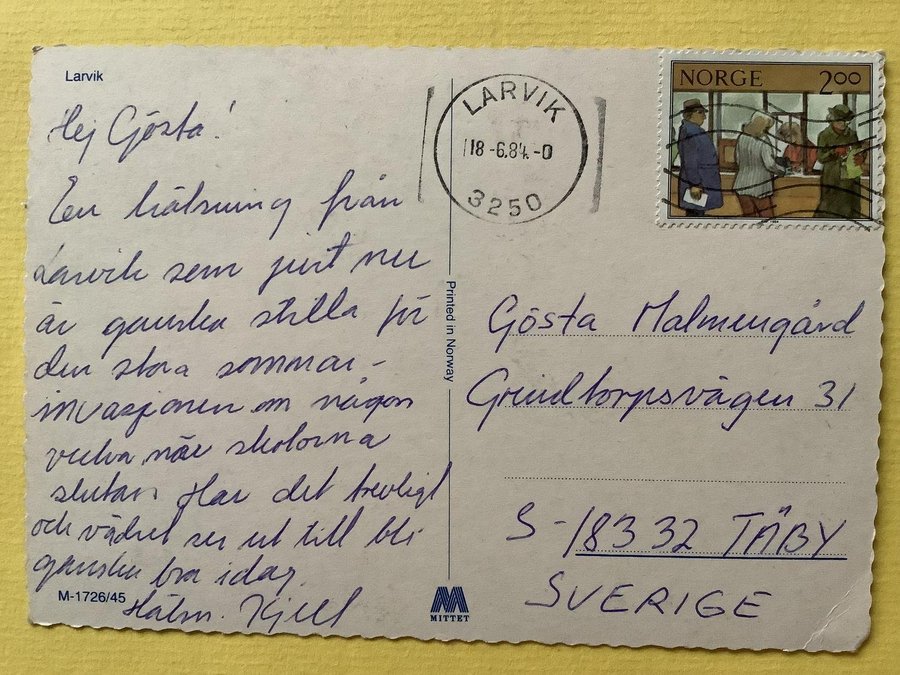 Larvik
Hej Gösta!
En hälsning från
Larvik som just nu
är ganska stilla för
den stora sommar-
invasjonen om någon
vecka när skolorna
slutar. Har det trevligt
och vädret ser ut till bli
ganska bra idag.
Hälsn. Kjell
M-1726/45
Printed in Norway
MITTET
LARVIK
18-6.84.-0
3250
NORGE 200
Gösta Malmengård
Grindtorpsvägen 31
S-183 32 TÄBY
SVERIGE